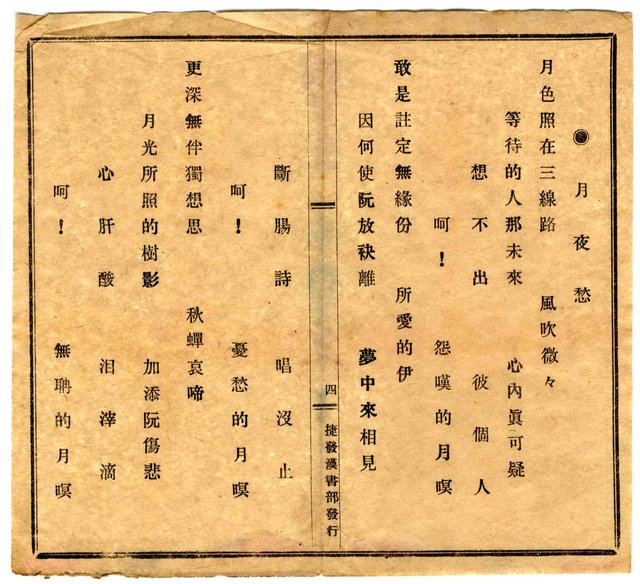 月夜愁
月色照在三線路　風吹微々
等待的人那未來　心內眞可疑
想不出　彼個人
呵！　怨嘆的月暝
敢是註定無緣份　所愛的伊
因何使阮放袂離　夢中來相見
四　捷發漢書部發行
斷腸詩　唱沒止
呵！　憂愁的月暝
更深無伴獨想思　秋蟬哀啼
月光所照的樹影　加添阮傷悲
心肝酸　泪滓滴
呵！　無聊的月暝